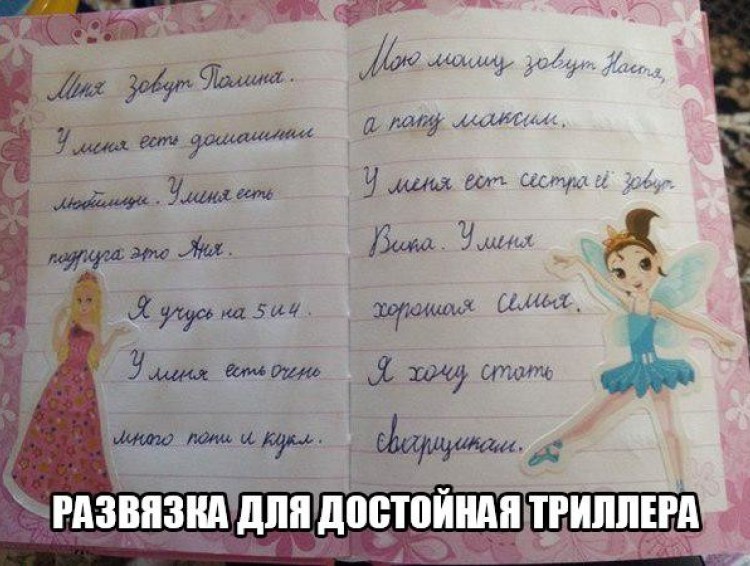 Меня зовут Полина.
У меня есть домашнии
любимци. У меня есть
подруга это Аня.
Я учусь на 5 и 4.
У меня есть очень
много пони и кукл.
Мою маму зовут Настя,
а папу максим.
У меня ест сестра её зовут
Вика. У меня
хорошая семья.
Я хочу стать
сварщикам.
РАЗВЯЗКА ДЛЯ ДОСТОЙНАЯ ТРИЛЛЕРА